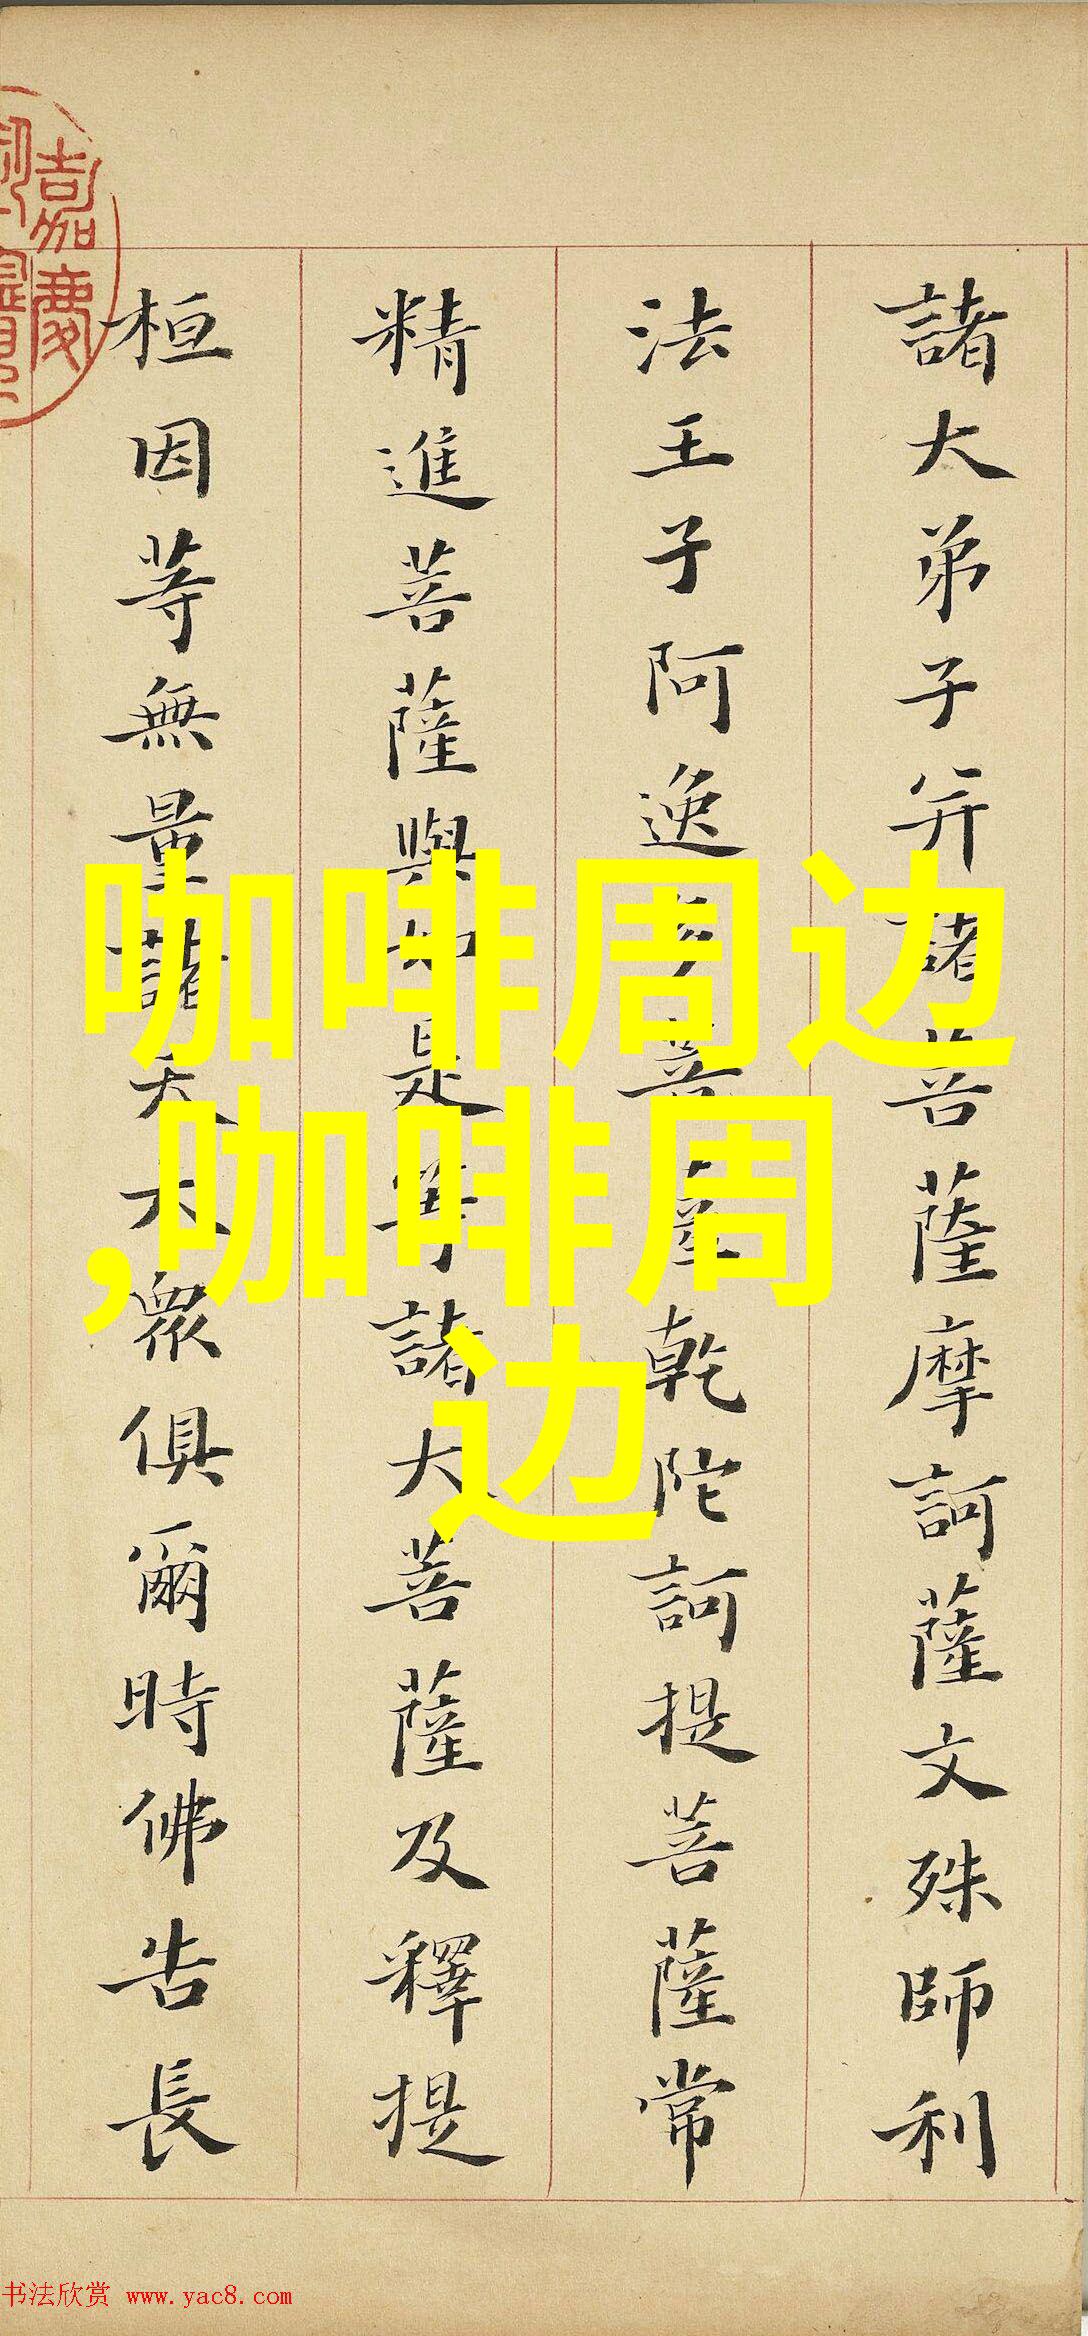 諸大弟子并諸菩薩摩訶薩文殊師利
法王子阿逸多菩薩乾陀訶提菩薩常
精進菩薩與如是等諸大菩薩及釋提
桓因等無量諸天大衆俱爾時佛告長
嘉慶
咖啡周边
,咖啡周
边
书法欣赏 www.yac8.com